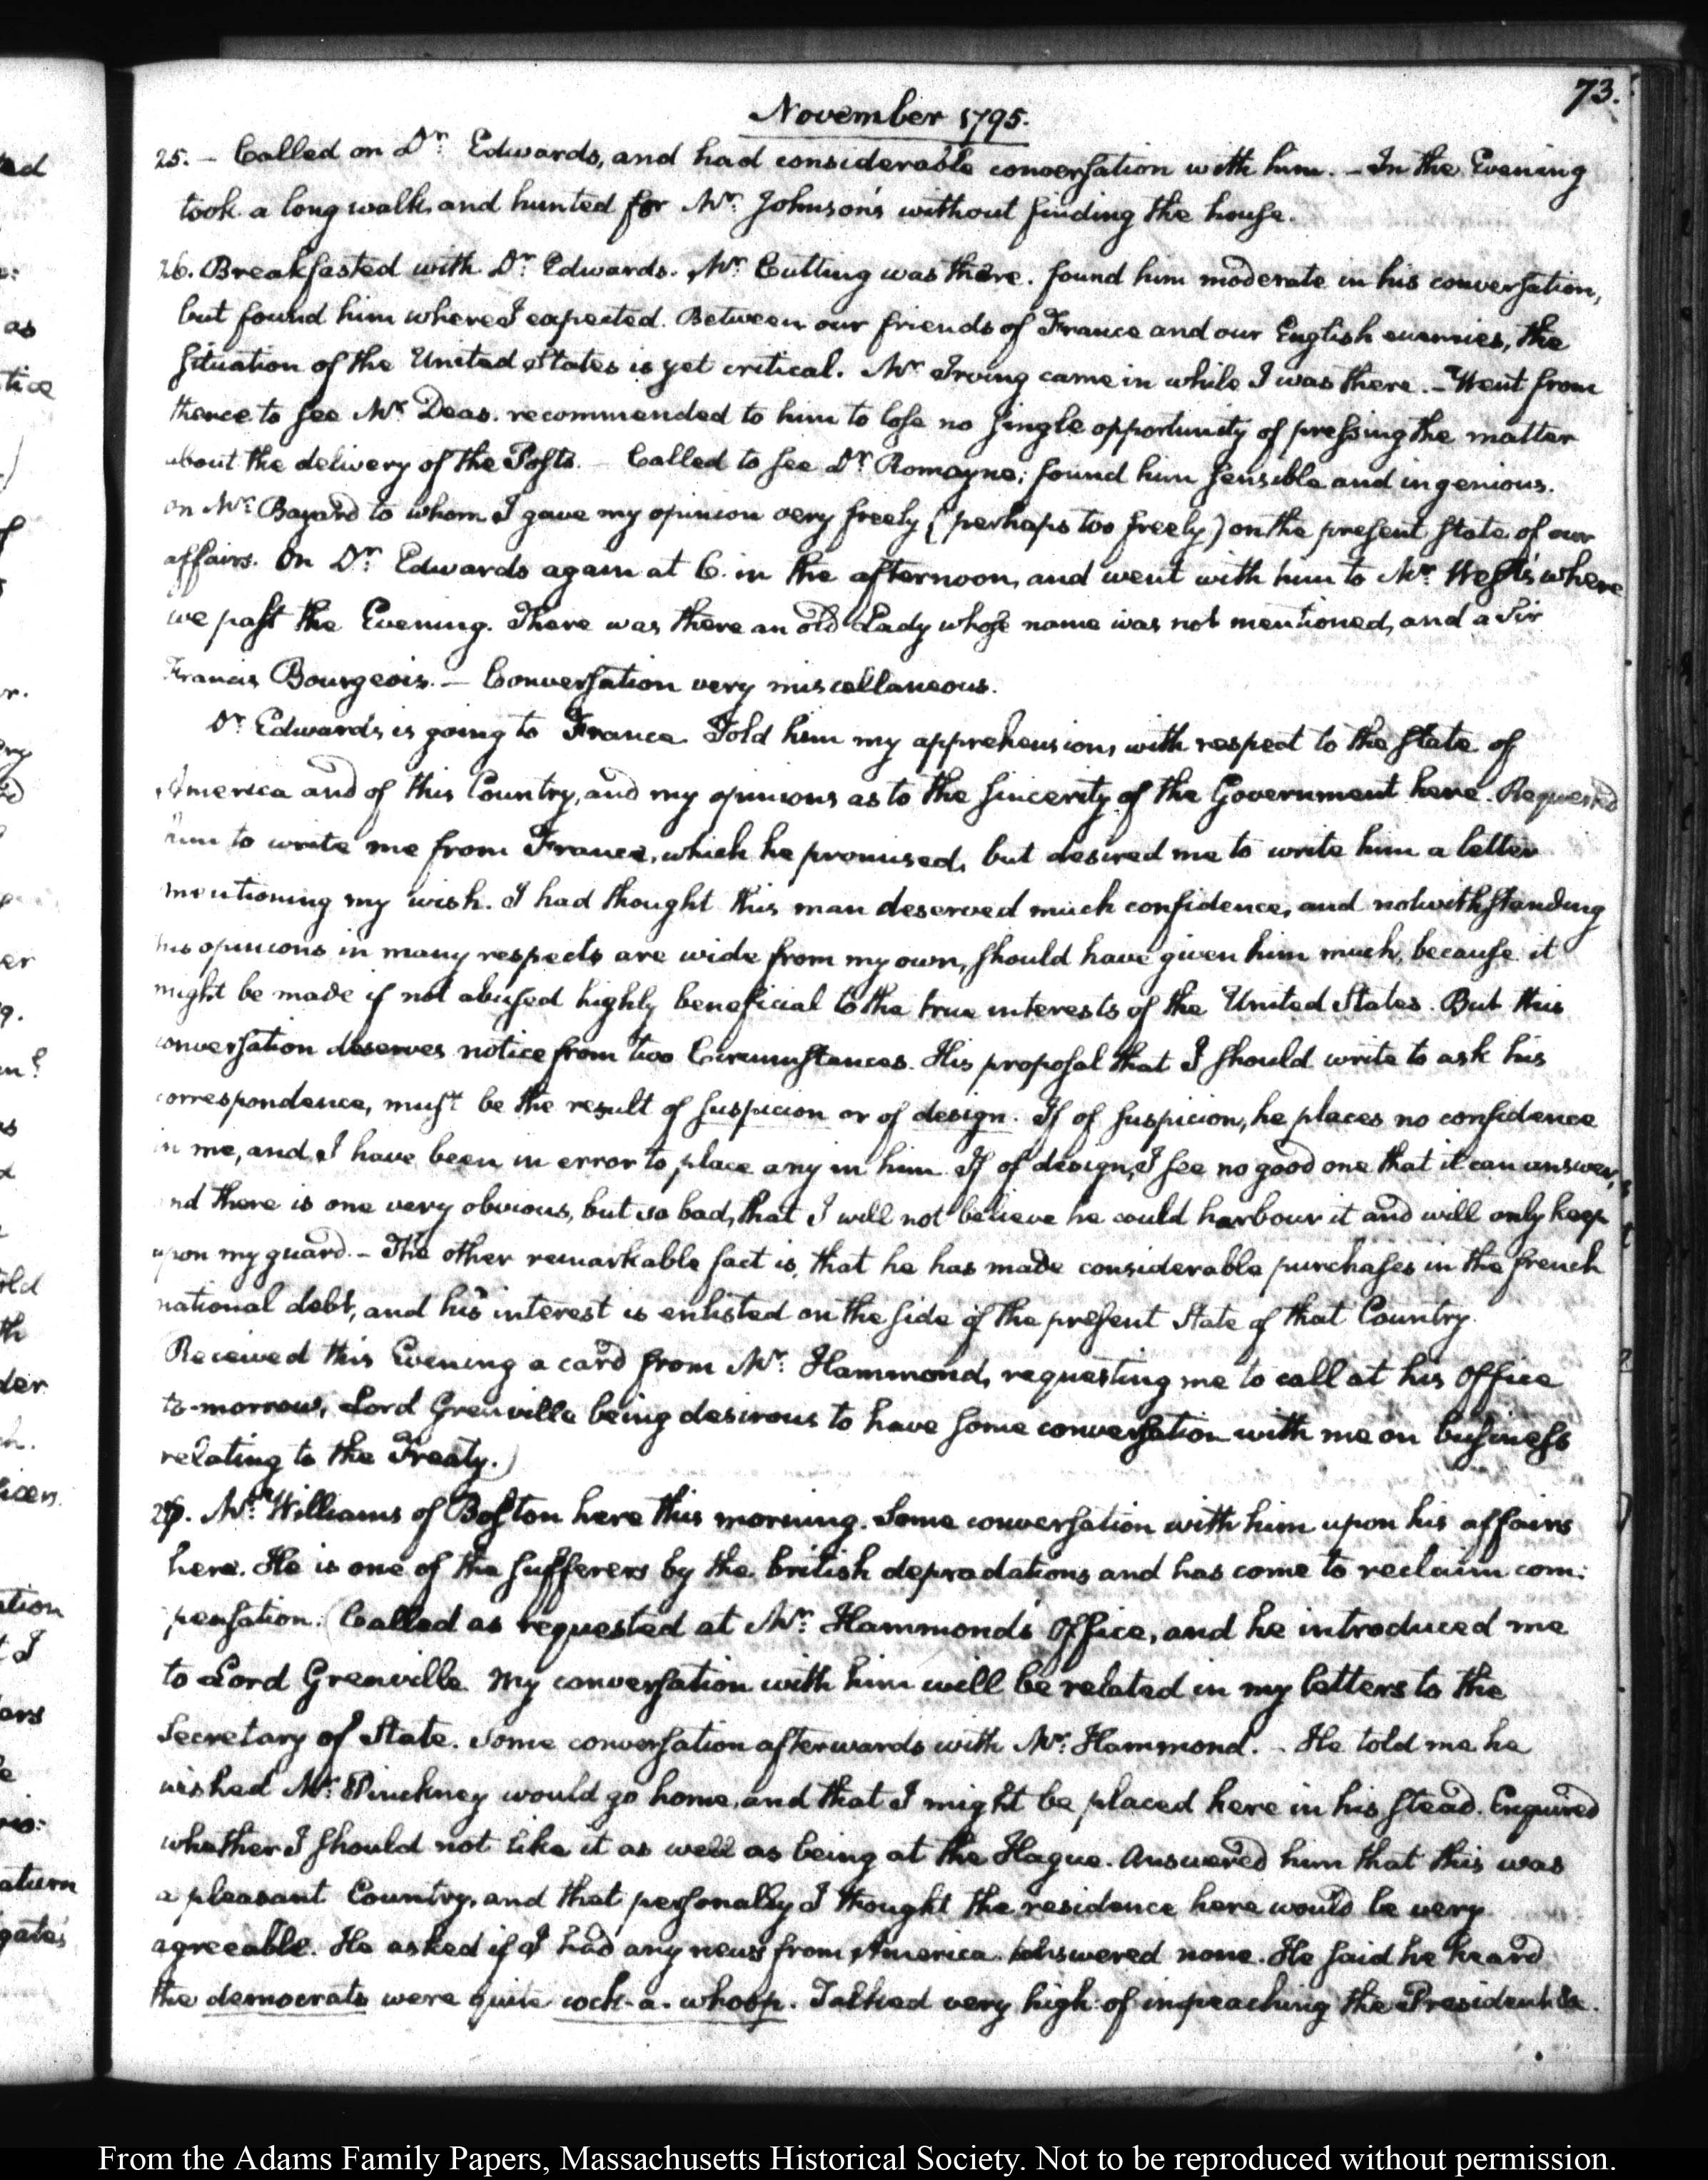 73.
November 1795.
25. – Called on Dr. Edwards, and had considerable conversation with him. – In the Evening
took a long walk, and hunted for Mr. Johnson's without finding the house.
26. Breakfasted with Dr. Edwards. Mr. Cutting was there. found him moderate in his conversation,
but found him where I expected. Between our friends of France and our English enemies, the
situation of the United States is yet critical. Mr. Irving came in while I was there. – Went from
thence to see Mr. Deas. recommended to him to lose no single opportunity of pressing the matter
about the delivery of the Posts. – Called to see Dr. Romayne; found him sensible and ingenious.
on Mr. Bayard to whom I gave my opinion very freely (perhaps too freely) on the present state of our
affairs. On Dr. Edwards again at 6. in the afternoon, and went with him to Mr. West's where
we past the Evening. There was there an old Lady whose name was not mentioned, and a Sir
Francis Bourgeois. – Conversation very miscellaneous.
Dr. Edwards is going to France. Told him my apprehensions with respect to the state of
America and of this Country, and my opinions as to the sincerity of the Government here. Requested
him to write me from France, which he promised, but desired me to write him a letter
mentioning my wish. I had thought this man deserved much confidence, and notwithstanding
his opinions in many respects are wide from my own, should have given him much, because it
might be made if not abused highly beneficial to the true interests of the United States. But this
conversation deserves notice from two Circumstances. His proposal that I should write to ask his
correspondence, must be the result of suspicion or of design. If of suspicion, he places no confidence
in me, and I have been in error to place any in him. If of design, I see no good one that it can answer,
and there is one very obvious, but so bad, that I will not believe he could harbour it and will only keep
upon my guard. – The other remarkable fact is, that he has made considerable purchases in the french
national debt, and his interest is enlisted on the side of the present State of that Country.
Received this Evening a card from Mr. Hammond, requesting me to call at his office
to-morrow, Lord Grenville being desirous to have some conversation with me on business
relating to the Treaty.)
27. Mr. Williams of Boston here this morning. Some conversation with him upon his affairs
here. He is one of the sufferers by the british depradations and has come to reclaim com:
pensation. (Called as requested at Mr. Hammond's Office, and he introduced me
to Lord Grenville. My conversation with him will be related in my letters to the
Secretary of State. Some conversation afterwards with Mr. Hammond. – He told me he
wished Mr. Pinckney would go home, and that I might be placed here in his stead. Enquired
whether I should not like it as well as being at the Hague. Answered him that this was
a pleasant Country, and that personally I thought the residence here would be very
agreeable. He asked if I had any news from America. Answered none. He said he heard
the democrats were quite cock-a-whoop. Talked very high of impeaching the President &c.
From the Adams Family Papers, Massachusetts Historical Society. Not to be reproduced without permission.